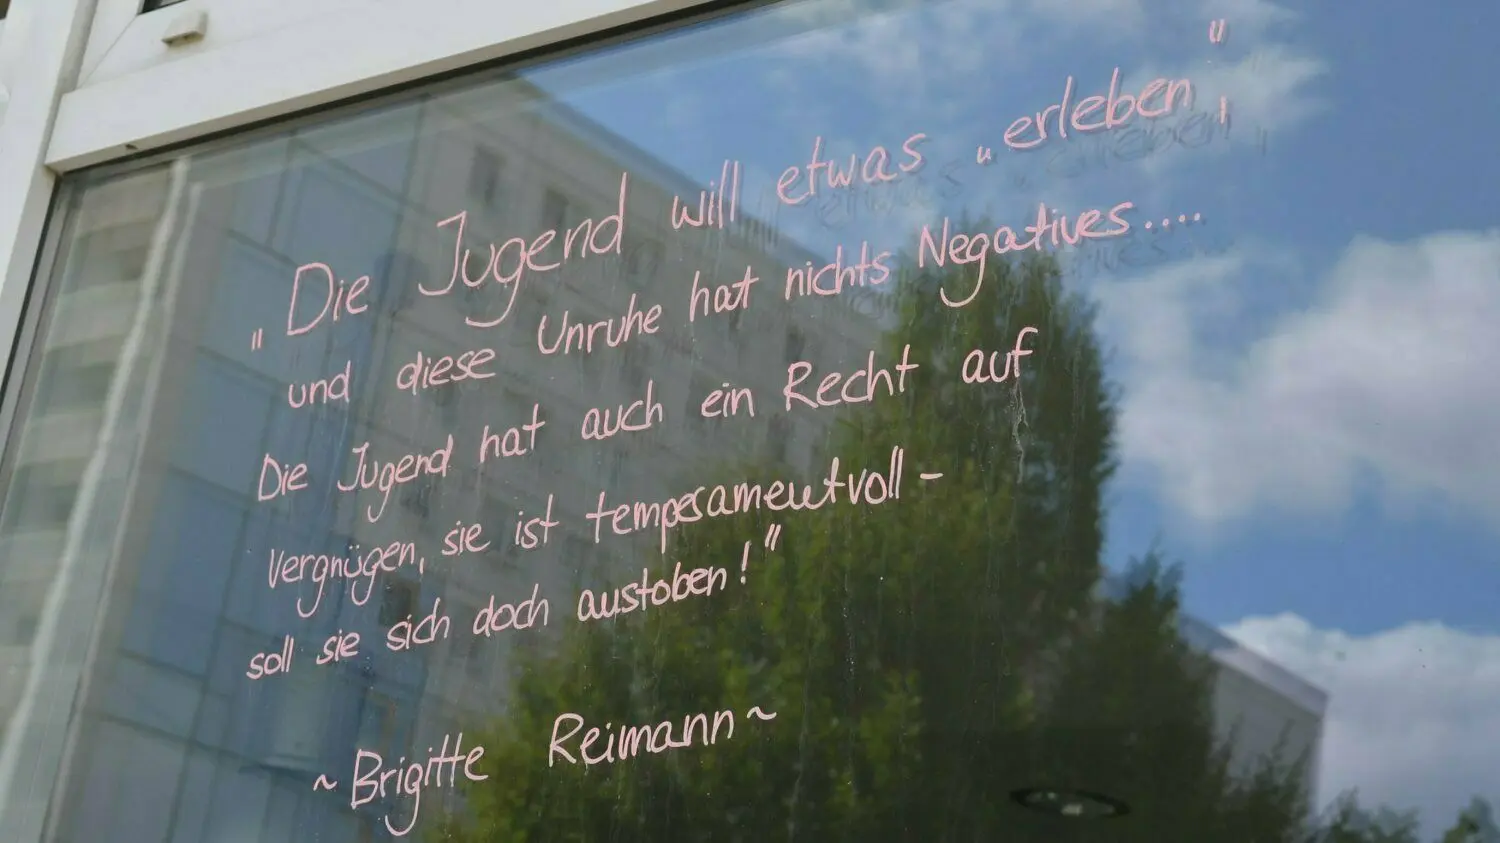 „Die Jugend will etwas „erleben“,
und diese Unruhe hat nichts Negatives....
Die Jugend hat auch ein Recht auf
Vergnügen, sie ist temperamentvoll –
soll sie sich doch austoben!“
~ Brigitte Reimann ~